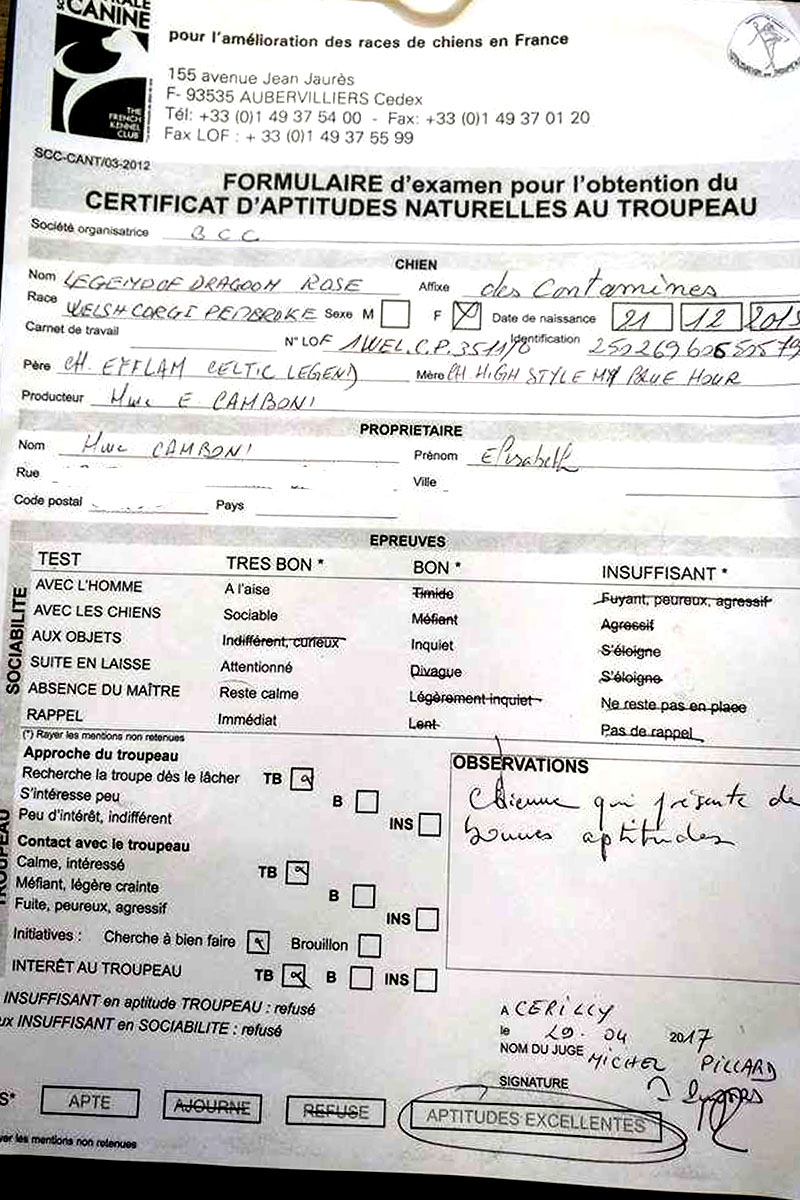 CANINE
THE FRENCH KENNEL CLUB
pour l'amélioration des races de chiens en France
155 avenue Jean Jaurès
F- 93535 AUBERVILLIERS Cedex
Tél: +33 (0)1 49 37 54 00 - Fax: +33 (0)1 49 37 01 20
Fax LOF : + 33 (0)1 49 37 55 99
SCC-CANT/03-2012
FORMULAIRE d'examen pour l'obtention du
CERTIFICAT D'APTITUDES NATURELLES AU TROUPEAU
Société organisatrice BCC
CHIEN
Nom LEGEND OF DRAGOON ROSE Affixe des Contamines
Race WELSH CORGI PEMBROKE Sexe M F X Date de naissance 21 12 2015
Carnet de travail N° LOF 1WEL.C.P.3511/0 Identification
Père CH. EFFLAM CELTIC LEGEND Mère CH. HIGH STYLE MY BLUE HOUR
Producteur Mme E. CAMBONI
PROPRIETAIRE
Nom Mme CAMBONI Prénom Elisabeth
Rue Ville
Code postal Pays
EPREUVES
SOCIABILITE
TEST TRES BON * BON * INSUFFISANT *
AVEC L'HOMME A l'aise Timide Fuyant, peureux, agressif
AVEC LES CHIENS Sociable Méfiant Agressif
AUX OBJETS Indifférent, curieux Inquiet S'éloigne
SUITE EN LAISSE Attentionné Divague S'éloigne
ABSENCE DU MAÎTRE Reste calme Légèrement inquiet Ne reste pas en place
RAPPEL Immédiat Lent Pas de rappel
(*) Rayer les mentions non retenues
TROUPEAU
Approche du troupeau
Recherche la troupe dès le lâcher TB
S'intéresse peu B
Peu d'intérêt, indifférent INS
Contact avec le troupeau
Calme, intéressé TB
Méfiant, légère crainte B
Fuite, peureux, agressif INS
Initiatives : Cherche à bien faire Brouillon
INTERÊT AU TROUPEAU TB B INS
OBSERVATIONS
Chienne qui présente de
bonnes aptitudes
INSUFFISANT en aptitude TROUPEAU : refusé
ux INSUFFISANT en SOCIABILITE : refusé
A CERILLY
le 29. 04 2017
NOM DU JUGE MICHEL PILLARD
SIGNATURE
S* APTE AJOURNE REFUSE APTITUDES EXCELLENTES
yer les mentions non retenues